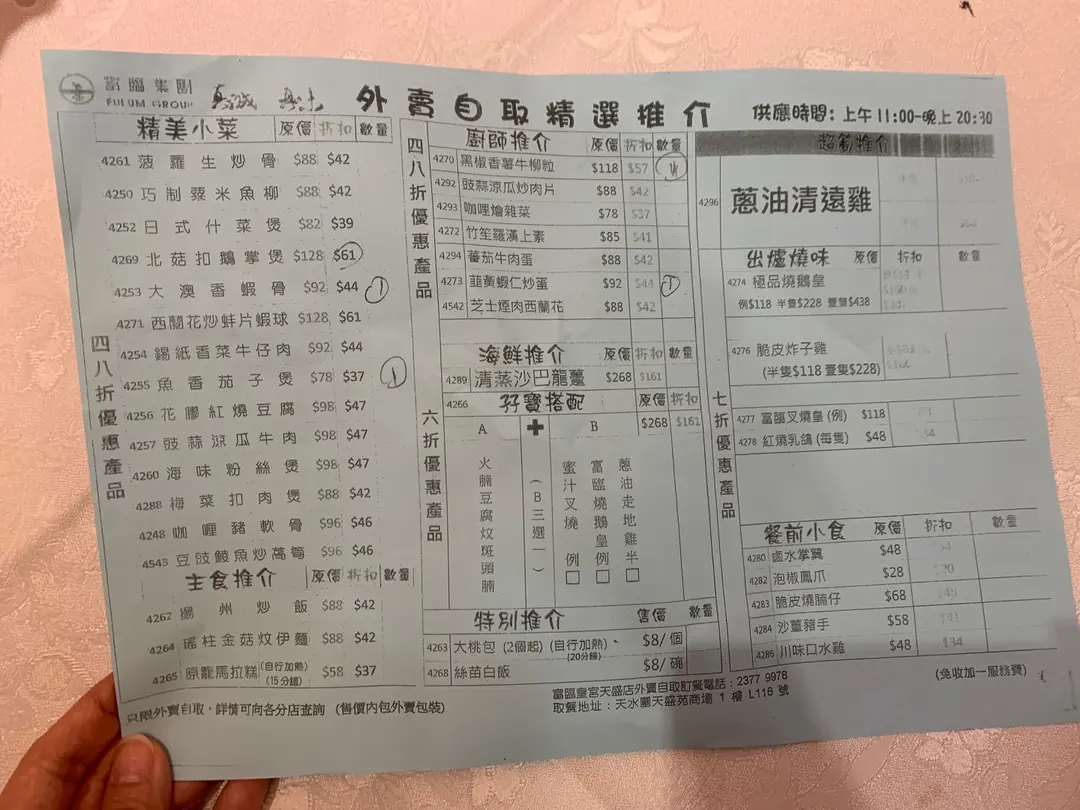 富臨集團
FULUM GROUP
真誠 真味
外賣自取精選推介
供應時間: 上午 11:00-晚上 20:30
精美小菜 原價 折扣 數量
4261 菠蘿生炒骨 $88 $42
4250 巧制粟米魚柳 $88 $42
4252 日式什菜煲 $82 $39
4269 北菇扣鵝掌煲 $128 $61
4253 大澳香蝦骨 $92 $44 1
4271 西蘭花炒蚌片蝦球 $128 $61
4254 錫紙香菜牛仔肉 $92 $44
4255 魚香茄子煲 $78 $37 1
4256 花膠紅燒豆腐 $98 $47
4257 豉蒜涼瓜牛肉 $98 $47
4260 海味粉絲煲 $98 $47
4288 梅菜扣肉煲 $88 $42
4248 咖喱豬軟骨 $96 $46
4543 豆豉鯪魚炒萵筍 $96 $46
四八折優惠產品
主食推介 原價 折扣 數量
4262 揚州炒飯 $88 $42
4264 瑤柱金菇炆伊麵 $88 $42
4265 原籠馬拉糕 (自行加熱) $58 $37
(15分鐘)
只限外賣自取，詳情可向各分店查詢 (售價內包外賣包裝)
四八折優惠產品
廚師推介 原價 折扣 數量
4270 黑椒香薯牛柳粒 $118 $57
4292 豉蒜涼瓜炒肉片 $88 $42
4293 咖哩燴雜菜 $78 $37
4272 竹笙羅漢上素 $85 $41
4294 蕃茄牛肉蛋 $88 $42
4273 韮黃蝦仁炒蛋 $92 $44 1
4542 芝士煙肉西蘭花 $88 $42
六折優惠產品
海鮮推介 原價 折扣 數量
4289 清蒸沙巴龍躉 $268 $161
4266 孖寶搭配 原價 折扣
A + B $268 $161
火腩豆腐炆斑頭腩
(B三選一)
蜜汁叉燒 例 □
富臨燒鵝皇 例 □
蔥油走地雞 半 □
特別推介 售價 數量
4263 大桃包 (2個起) (自行加熱) $8/ 個
(20分鐘)
4268 絲苗白飯 $8/ 碗
富臨皇宮天盛店外賣自取訂餐電話：2377 9978
取餐地址：天水圍天盛苑商場 1 樓 L116 號
超筍推介
4296 蔥油清遠雞
七折優惠產品
出爐燒味 原價 折扣 數量
4274 極品燒鵝皇
例$118 半隻$228 壹隻$438
4276 脆皮炸子雞
(半隻$118 壹隻$228)
4277 富臨叉燒皇 (例) $118
4278 紅燒乳鴿 (每隻) $48
餐前小食 原價 折扣 數量
4280 鹵水掌翼 $48
4282 泡椒鳳爪 $28
4283 脆皮燒腩仔 $68
4284 沙薑豬手 $58
4286 川味口水雞 $48
(免收加一服務費)